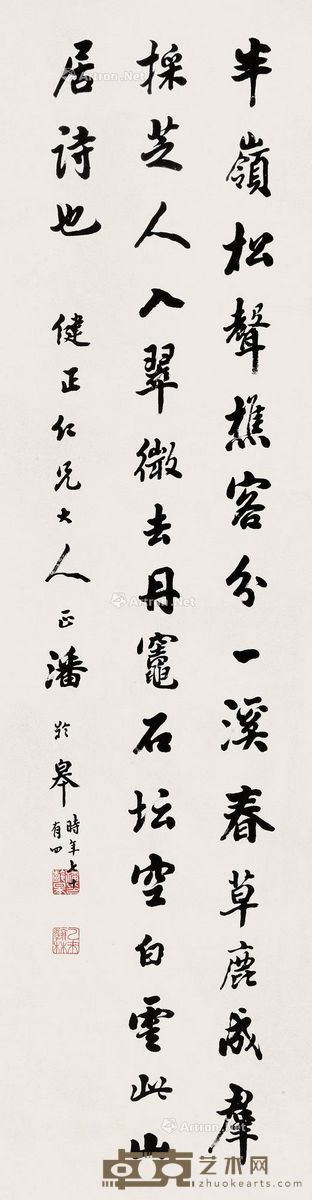 半嶺松聲樵客分一溪春草鹿成羣
採芝人入翠微去丹竈石坛空白雲此山
居詩也
健正仁兄大人正潘齡皋時年七十
有四
卓克艺术网
zhuokearts.com
Artron.Net